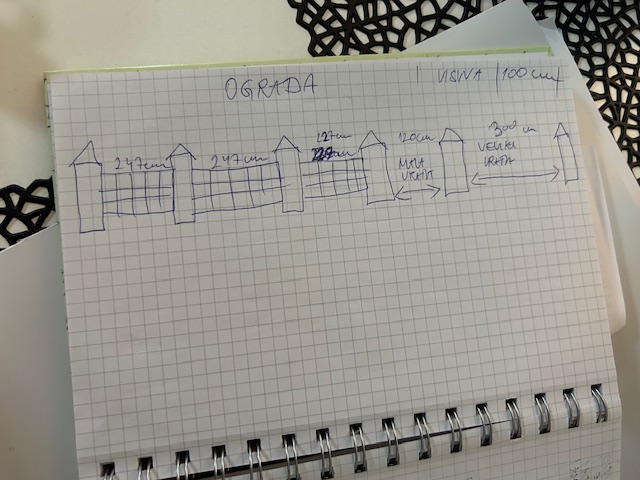 OGRADA
VISINA 100 cm
247cm
247cm
227cm
120cm
MALA
VRATA
300 cm
VELIKA
VRATA